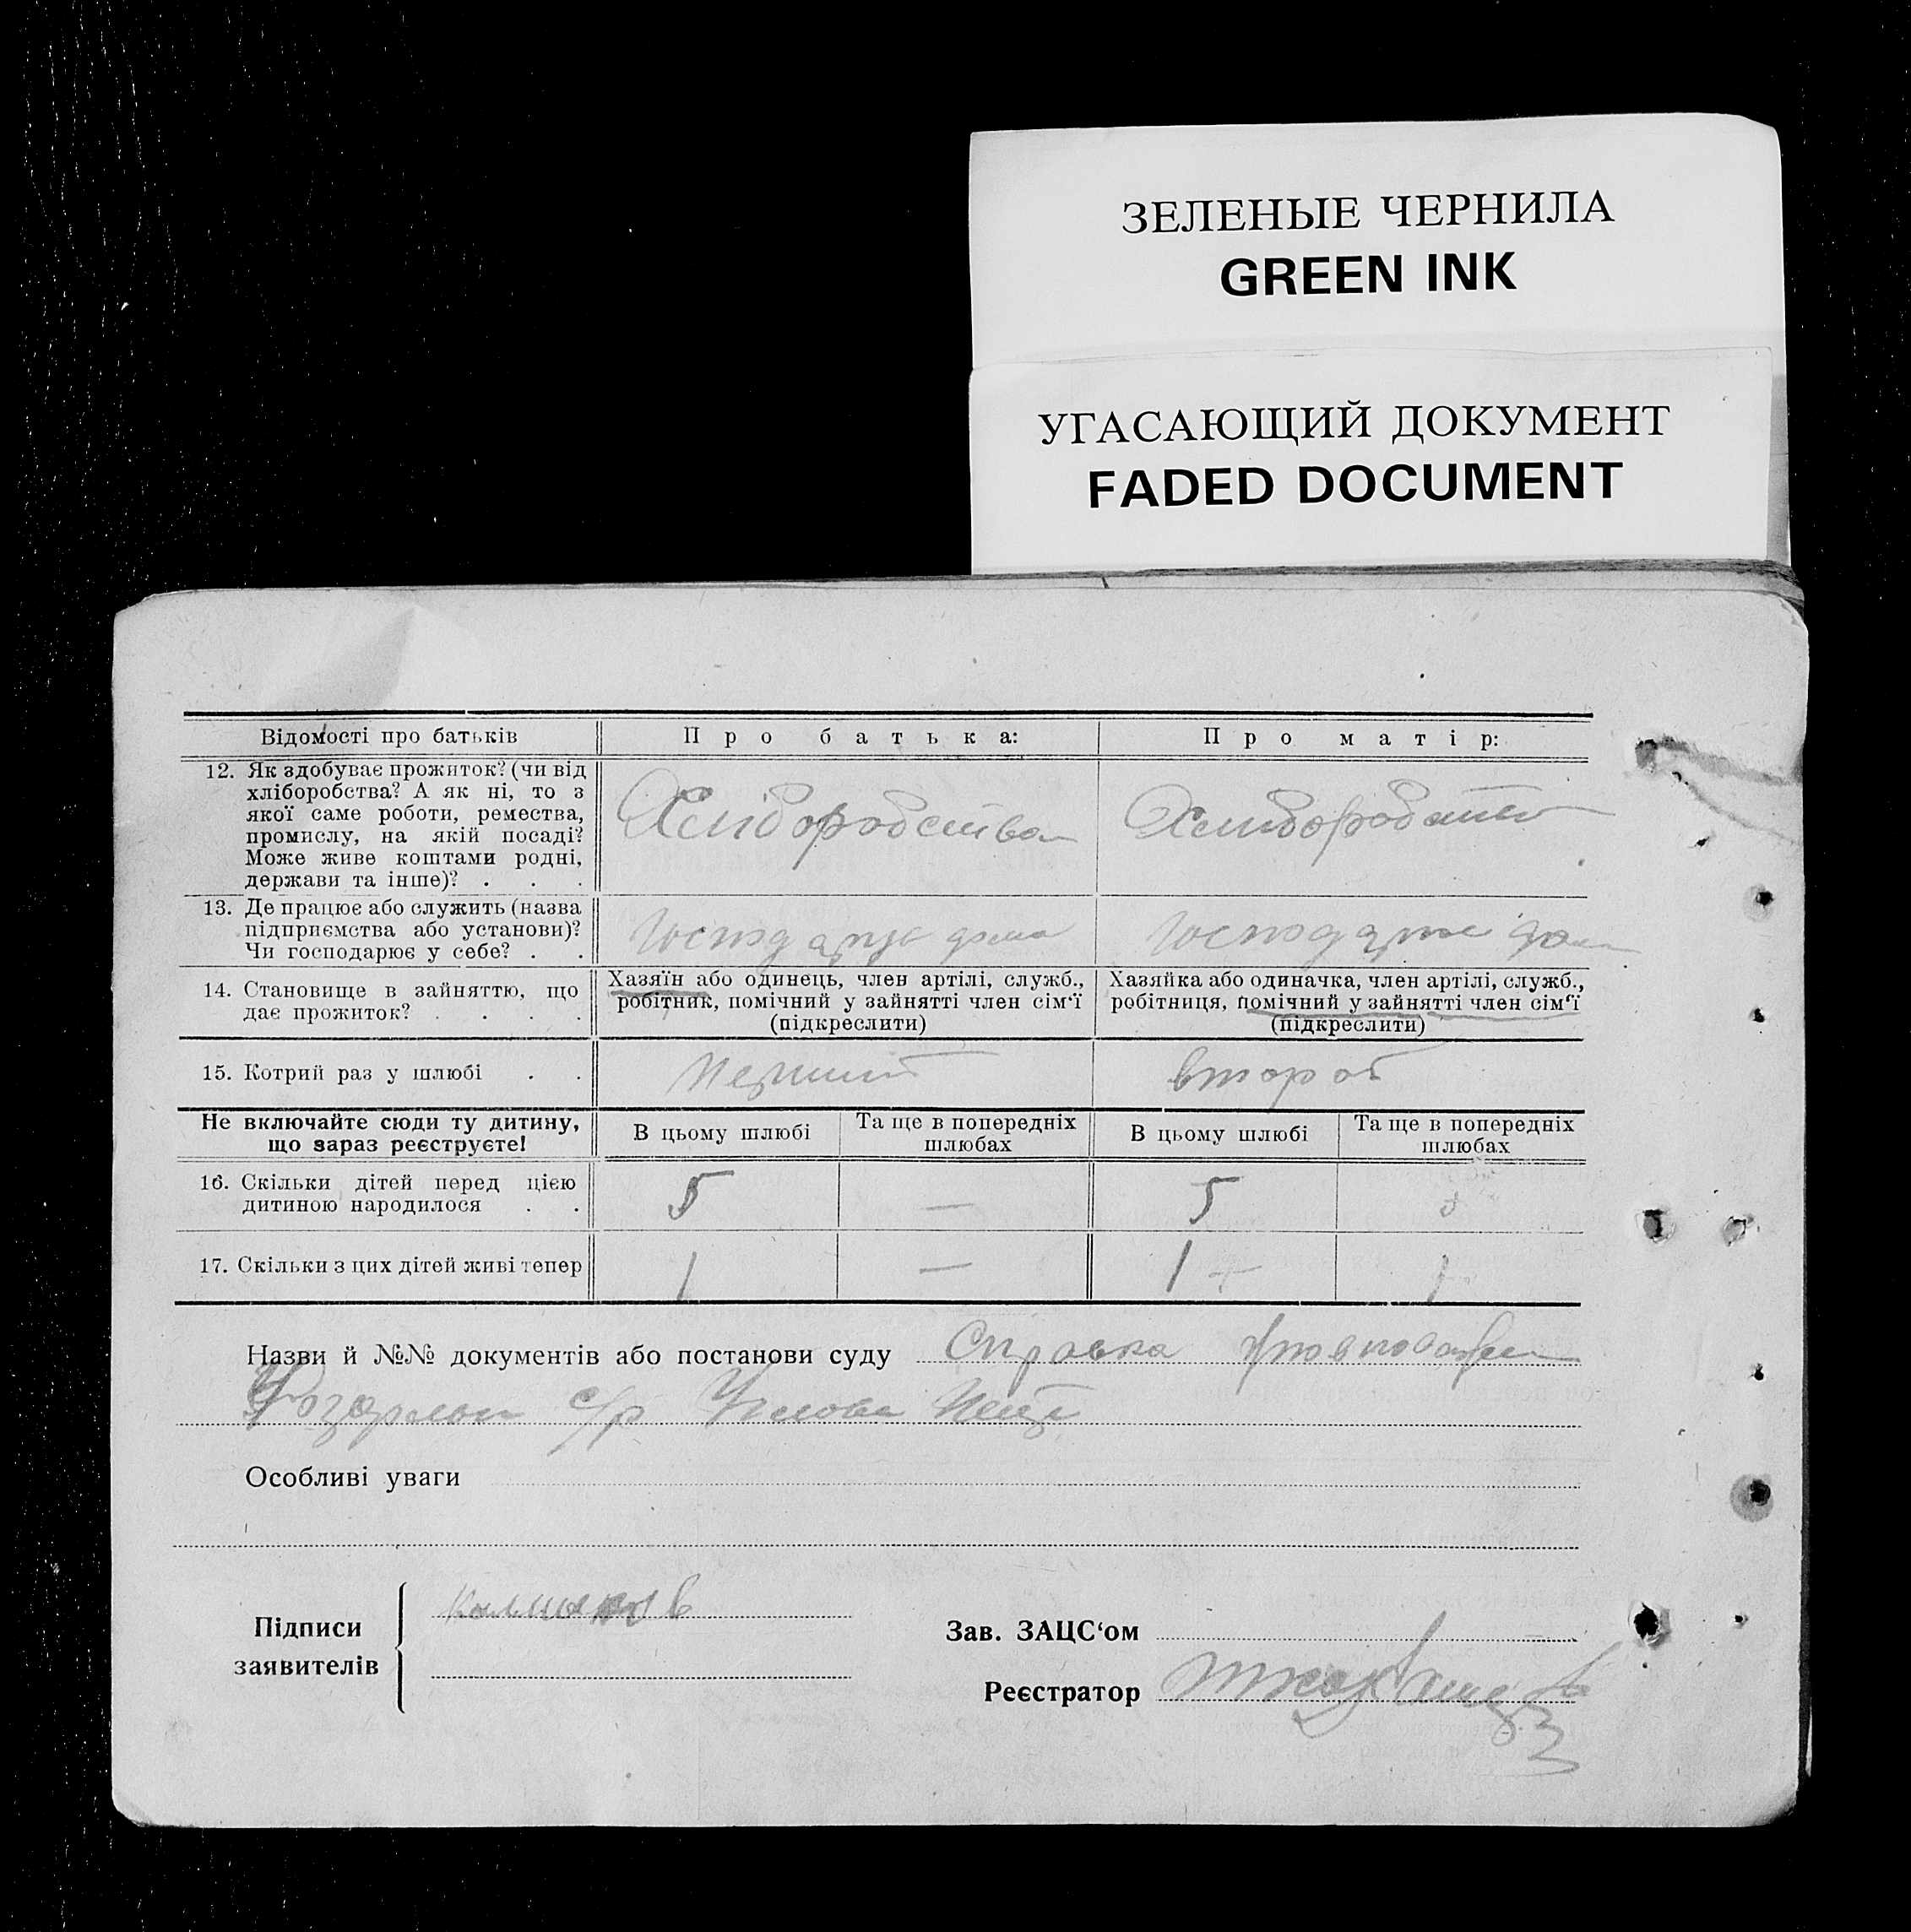 ЗЕЛЕНЫЕ ЧЕРНИЛА
GREEN INK
УГАСАЮЩИЙ ДОКУМЕНТ
FADED DOCUMENT
Відомості про батьків
Про батька:
Про матір:
12. Як здобуває прожиток? (чи від
хліборобства? А як ні, то з
якої саме роботи, ремества,
промислу, на якій посаді?
Може живе коштами родні,
держави та інше)? . . .
Хліборобства
Хлиборобство
13. Де працює або служить (назва
підприємства або установи)?
Чи господарює у себе? . .
Господарує дома
Господарює дома
14. Становище в зайняттю, що
дає прожиток? . . . .
Хазяїн або одинець, член артілі, служб.,
робітник, помічний у зайнятті член сім‘ї
(підкреслити)
Хазяйка або одиначка, член артілі, служб.,
робітниця, помічний у зайнятті член сім‘ї
(підкреслити)
15. Котрий раз у шлюбі . .
Перший
второй
Не включайте сюди ту дитину,
що зараз реєструєте!
В цьому шлюбі
Та ще в попередніх
шлюбах
В цьому шлюбі
Та ще в попередніх
шлюбах
16. Скільки дітей перед цією
дитиною народилося . .
5
—
5
17. Скільки з цих дітей живі тепер
1
—
1
1
Назви й №№ документів або постанови суду Справка
с/р
Особливі уваги
Підписи
заявителів
Калмыков
Зав. ЗАЦС‘ом
Реєстратор